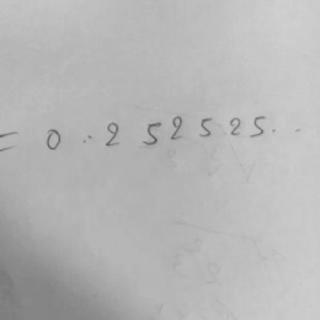 = 0.252525...